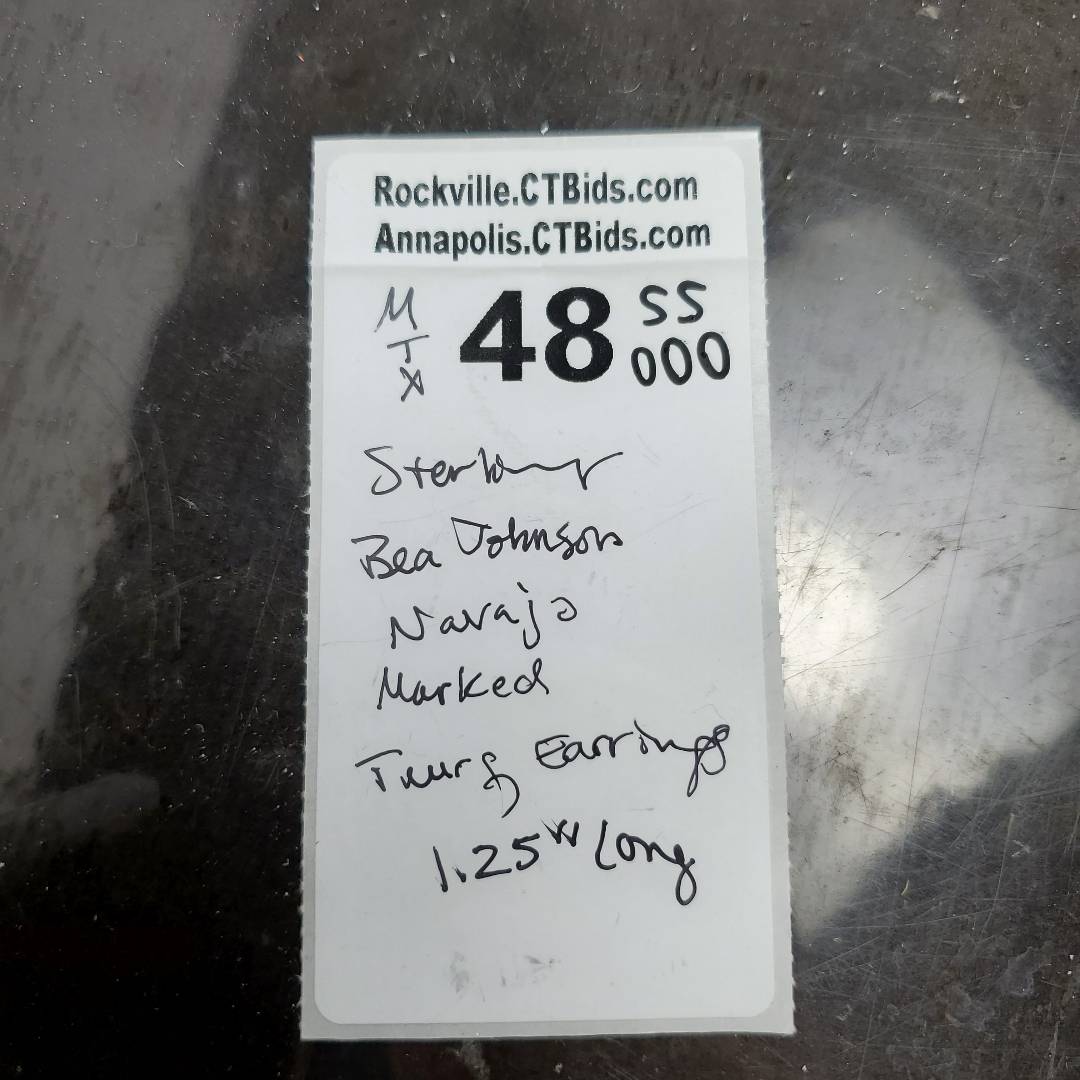 Rockville.CTBids.com
Annapolis.CTBids.com
MTX 48 SS 000
Sterling
Bea Johnson
Navajo
Marked
Turq Earrings
1.25" Long